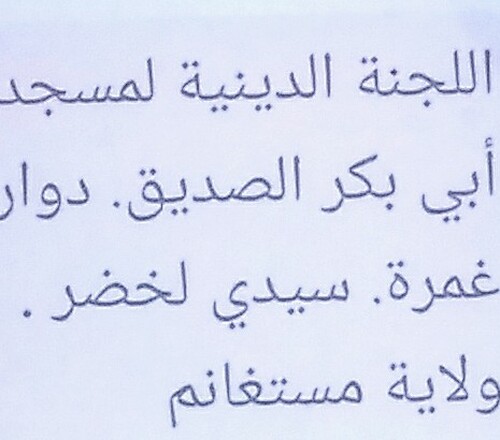 اللجنة الدينية لمسجد
أبي بكر الصديق. دوار
غمرة. سيدي لخضر .
ولاية مستغانم